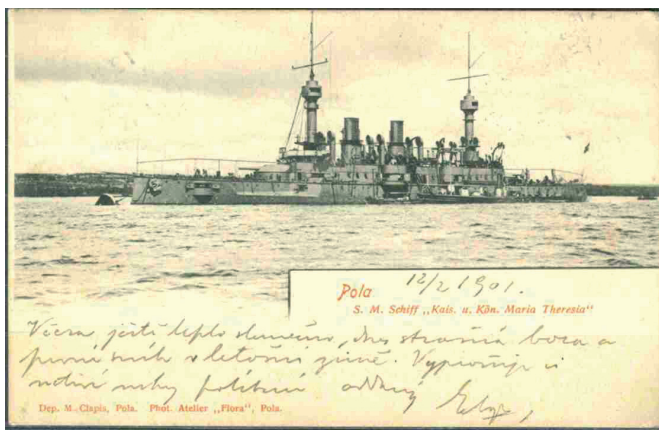 Pola 12/2 1901.
S. M. Schiff „Kais. u. Kön. Maria Theresia“
Včera ještě teplo slunečno, dnes strašná bora a
první sníh v letošní zimě.
políbení oddaný
Dep. M. Clapis, Pola. Phot. Atelier „Flora“, Pola.